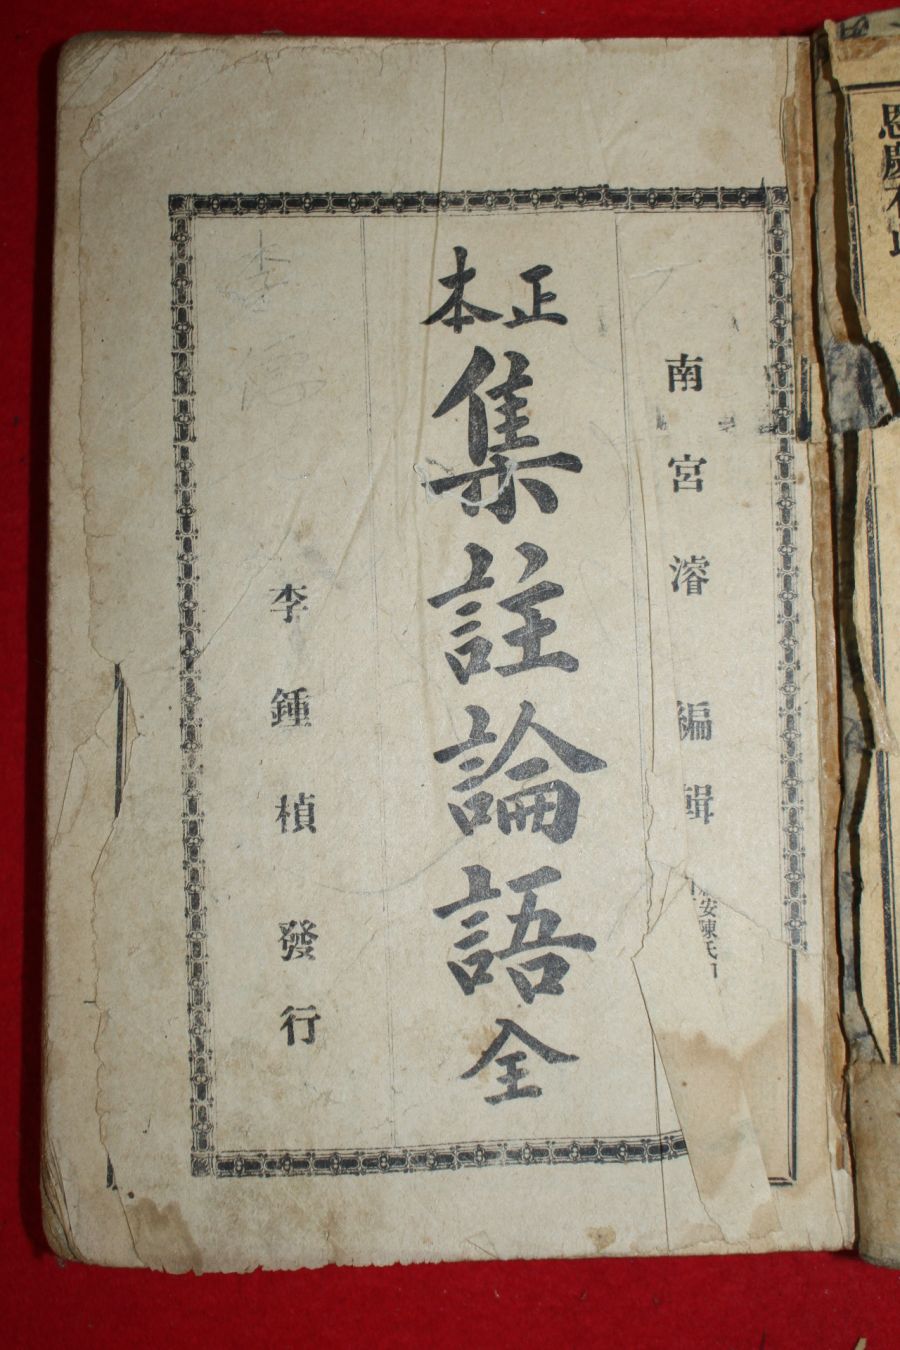 南宮濬 編輯
安陳氏
正本
集註論語全
李鍾楨發行